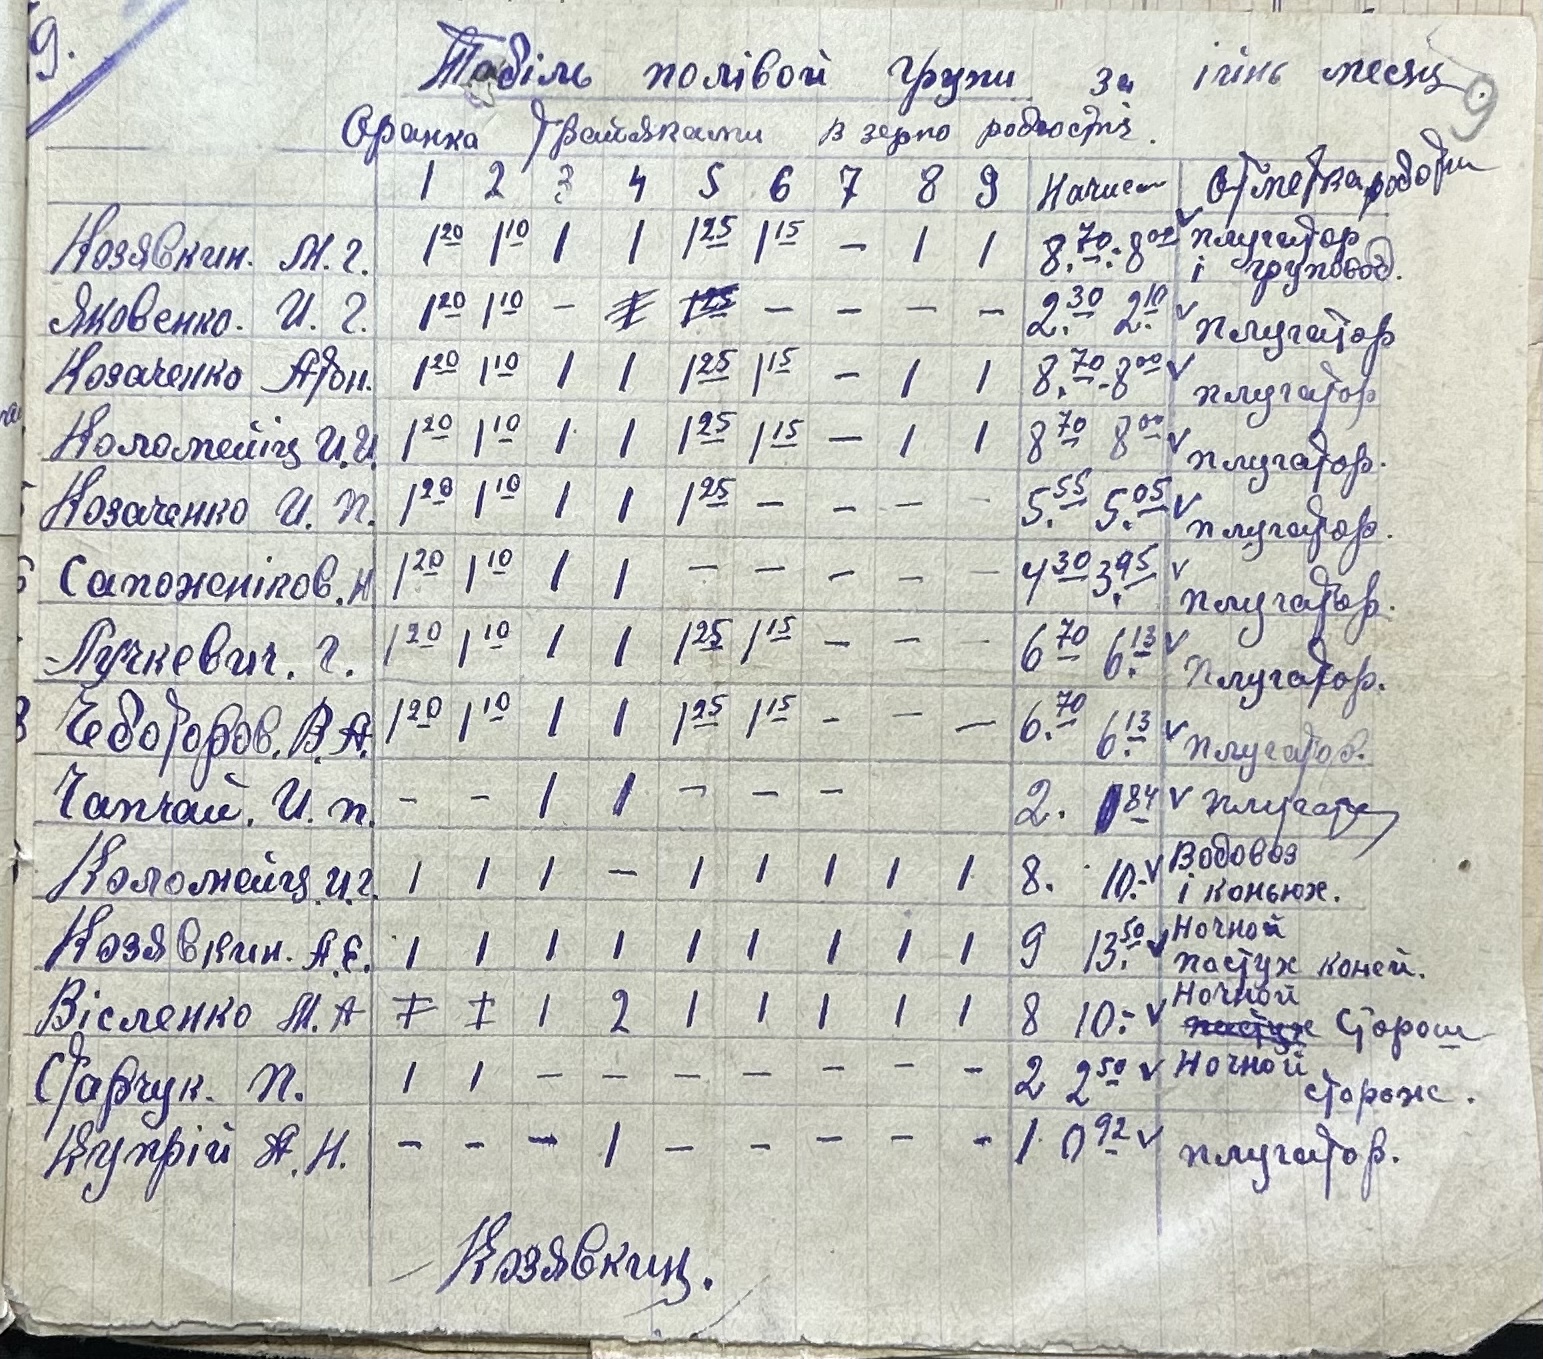 9.
Табіль полівой групи за іюнь месяц.
9
Оранка
1 2 3 4 5 6 7 8 9 Начисл Отметка роботи
Козявкин. М. Г. 1 20 1 10 1 1 1 25 1 15 - 1 1 8.70 - 8 00 v плугатор
і груповод.
Яковенко. И. Г. 1 20 1 10 - 1 1 25 - - - - 2.30 2.10 v плугатор
Козаченко Афон. 1 20 1 10 1 1 1 25 1 15 - 1 1 8.70 - 8 00 v плугатор
Коломейец И.И. 1 20 1 10 1 1 1 25 1 15 - 1 1 8 70 8 00 v плугатор.
Козаченко И. П. 1 20 1 10 1 1 1 25 - - - - 5.55 5.05 v плугатор.
6 Сапожніков. Н 1 20 1 10 1 1 - - - - - 4 30 3.95 v плугатор.
Лучкевич. Г. 1 20 1 10 1 1 1 25 1 15 - - - 6 70 6.13 v плугатор.
8 Чеботоров. В. А. 1 20 1 10 1 1 1 25 1 15 - - - 6.70 6.13 v плугатор.
Чапчай. И. П. - - 1 1 - - - 2. 1 84 v плугатор
Коломейец. И. Г. 1 1 1 - 1 1 1 1 1 8. 10.- v Водовоз
і коньюх.
Козявкин. А. Е. 1 1 1 1 1 1 1 1 1 9 13.50 v Ночной
пастух коней.
Вісленко М. А 1 1 1 2 1 1 1 1 1 8 10.- v Ночной
пастух Сторош
Старчук. П. 1 1 - - - - - - - 2 2 50 v Ночной
сторож.
Купрій А. Н. - - - 1 - - - - - 1. 0 92 v плугатор.
Козявкин.